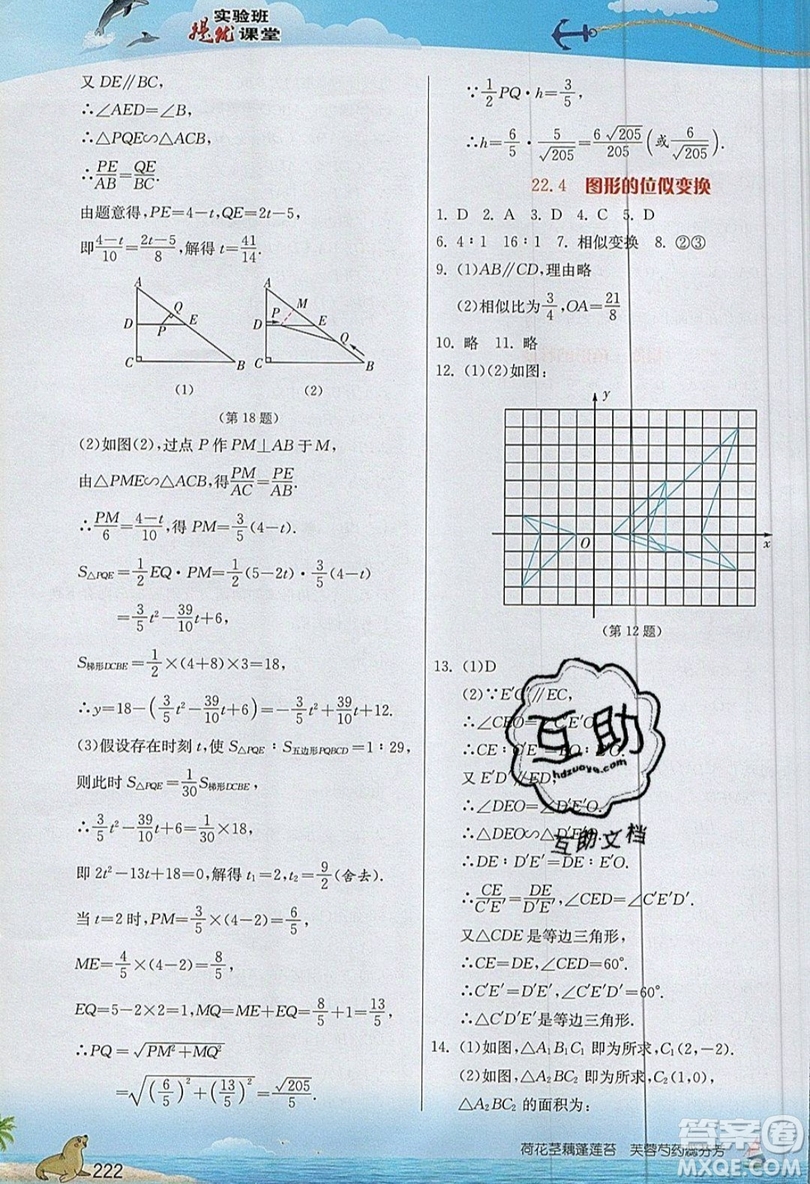 实验班
提优课堂
又 DE∥BC,
∴∠AED=∠B,
∴△PQE∽△ACB,
∴PE/AB=QE/BC.
由题意得,PE=4-t,QE=2t-5,
即(4-t)/10=(2t-5)/8,解得 t=41/14.
A
D
Q
P
E
C
B
(1)
A
M
P
D
E
Q
C
B
(2)
(第 18 题)
(2)如图(2),过点 P 作 PM⊥AB 于 M,
由△PME∽△ACB,得PM/AC=PE/AB,
∴PM/6=(4-t)/10,得 PM=3/5(4-t).
S△PQE=1/2 EQ·PM=1/2(5-2t)·3/5(4-t)
=3/5 t²-39/10 t+6,
S梯形DCBE=1/2×(4+8)×3=18,
∴y=18-(3/5 t²-39/10 t+6)=-3/5 t²+39/10 t+12.
(3)假设存在时刻 t,使 S△PQE∶S五边形PQBCD=1∶29,
则此时 S△PQE=1/30 S梯形DCBE,
∴3/5 t²-39/10 t+6=1/30×18,
即 2t²-13t+18=0,解得 t₁=2,t₂=9/2(舍去).
当 t=2 时,PM=3/5×(4-2)=6/5,
ME=4/5×(4-2)=8/5,
EQ=5-2×2=1,MQ=ME+EQ=8/5+1=13/5,
∴PQ=√(PM²+MQ²)
=√((6/5)²+(13/5)²)=√205/5.
∵1/2 PQ·h=3/5,
∴h=6/5·5/√205=6√205/205(或6/√205).
22.4 图形的位似变换
1. D 2. A 3. D 4. C 5. D
6. 4∶1 16∶1 7. 相似变换 8. ②③
9. (1)AB∥CD,理由略
(2)相似比为3/4,OA=21/8
10. 略 11. 略
12. (1)(2)如图:
y
O
x
(第 12 题)
13. (1)D
(2)∵E′C′∥EC,
∴∠CEO=∠C′E′O.
∴CE∶C′E′=
又 E′D′∥ED,
∴∠DEO=∠D′E′O.
∴△DEO∽△D′E′
∴DE∶D′E′=EO∶E′O.
∴CE/C′E′=DE/D′E′,∠CED=∠C′E′D′.
又△CDE 是等边三角形,
∴CE=DE,∠CED=60°.
∴C′E′=D′E′,∠C′E′D′=60°.
∴△C′D′E′是等边三角形.
14. (1)如图,△A₁B₁C₁ 即为所求,C₁(2,-2).
(2)如图,△A₂BC₂ 即为所求,C₂(1,0),
△A₂BC₂ 的面积为:
互助
hdzuoye.com
互助·文档
荷花茎藕蓬莲苔 芙蓉芍药蕊芬芳
222
答案圈
MXQE.COM